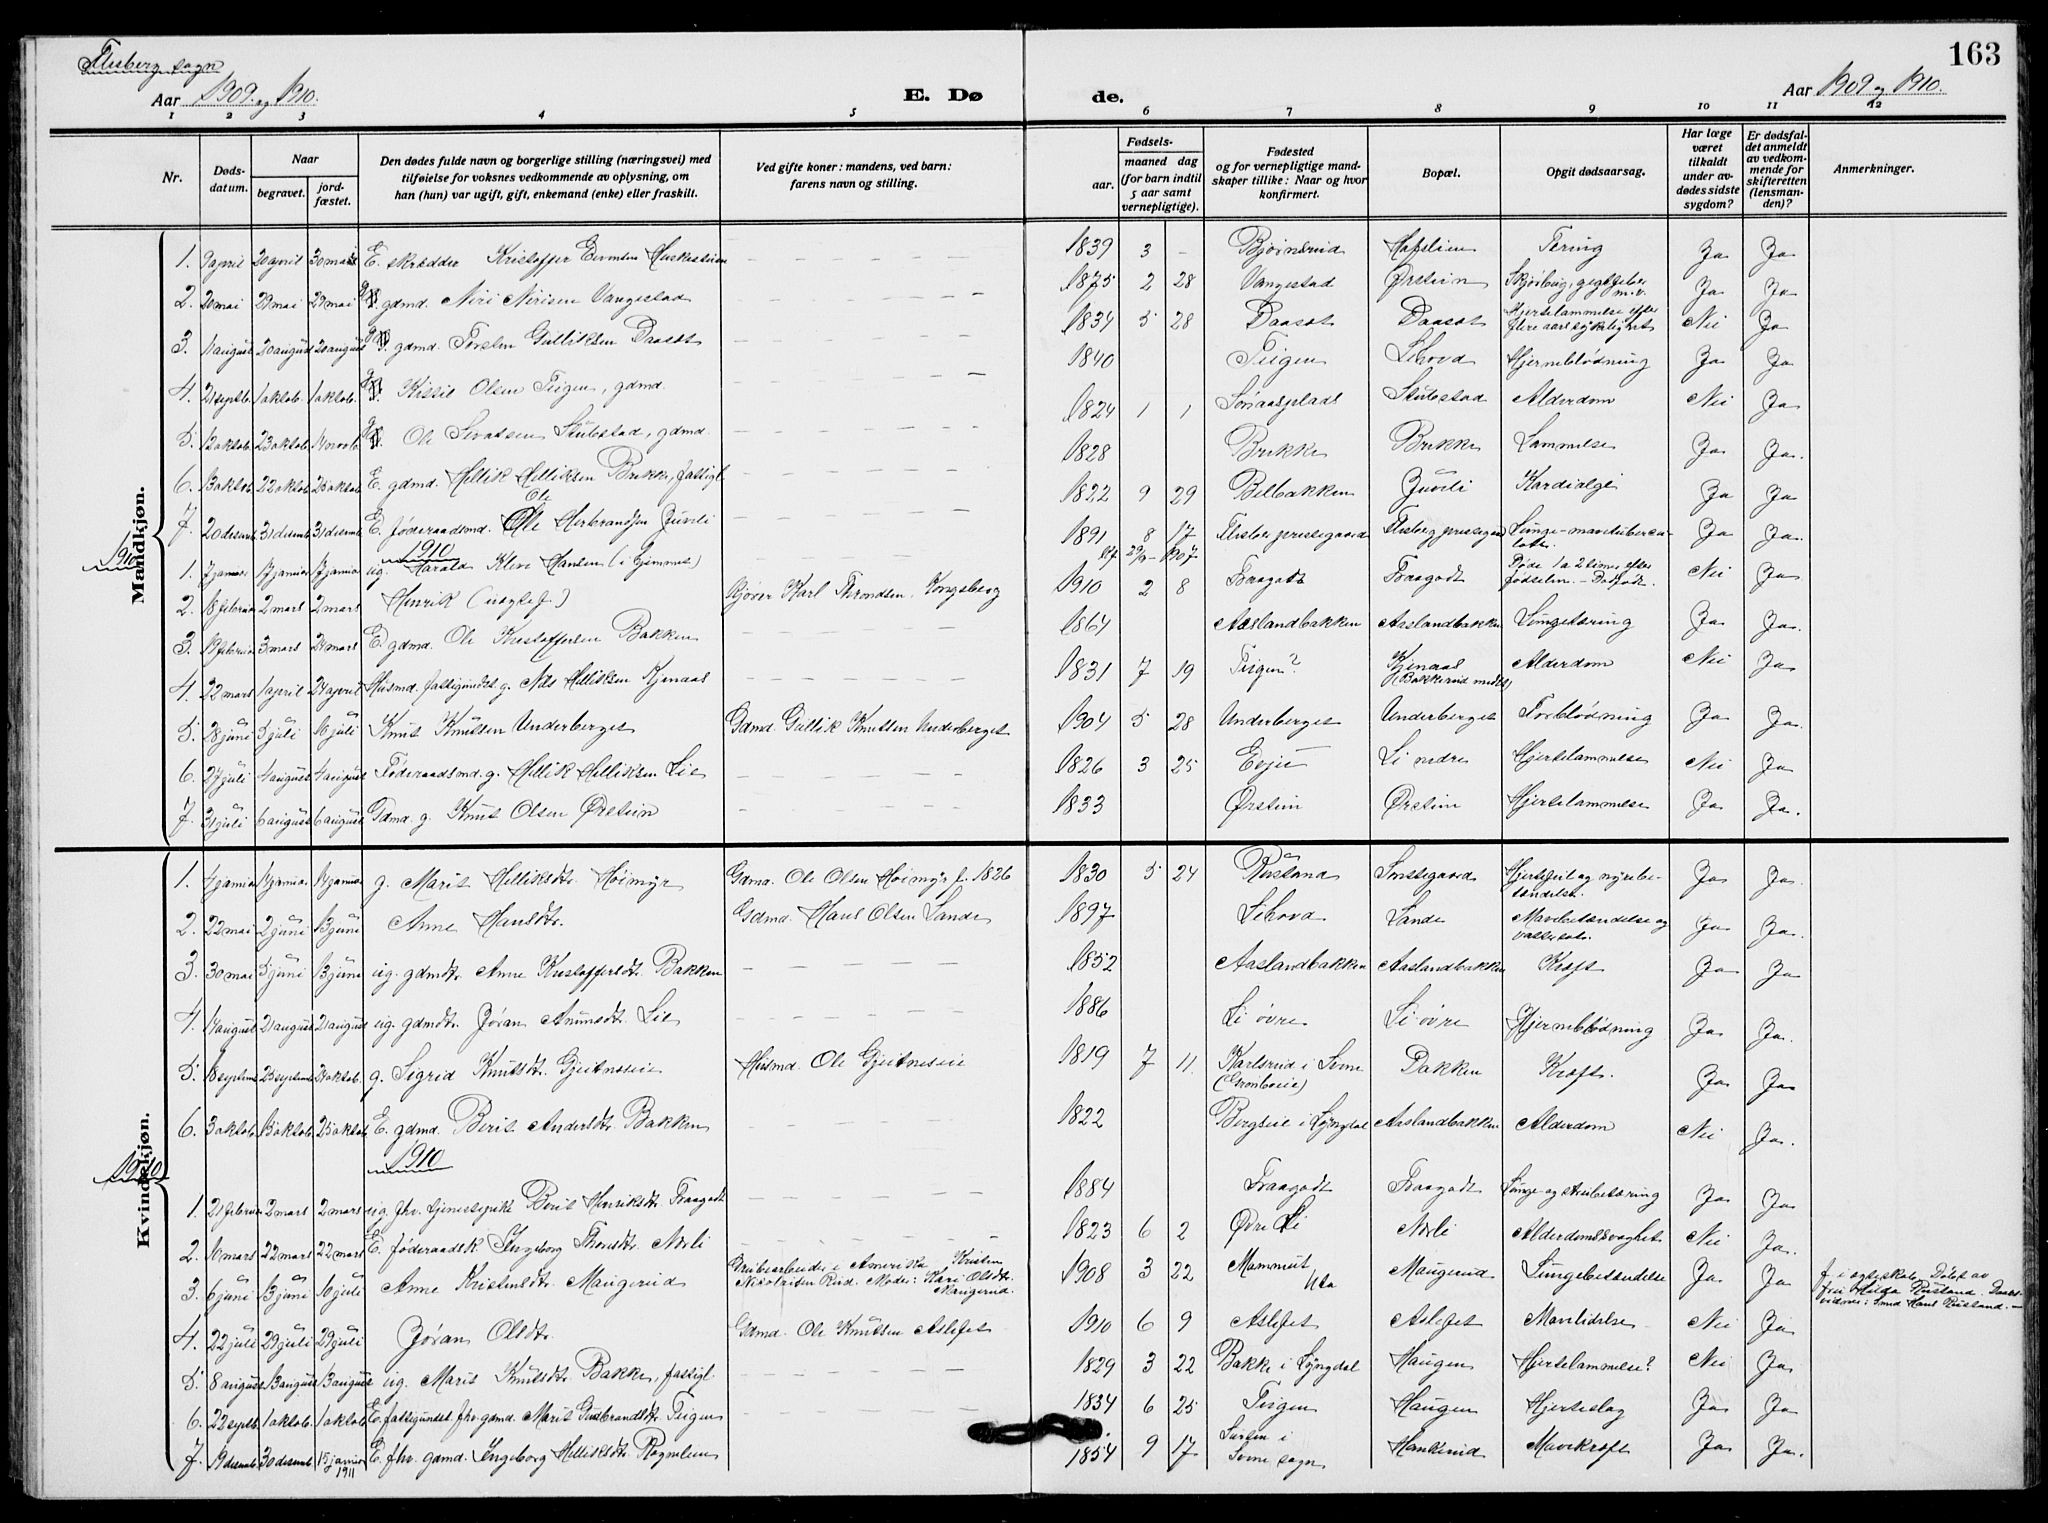 Flesberg sogn
163
Aar 1909 og 1910.
E. Dø
de.
Aar 1909 og 1910.
1 2 3 4 5 6 7 8 9 10 11 12
Nr.
Døds-datum.
Naar
begravet.
jord-fæstet.
Den dødes fulde navn og borgerlige stilling (næringsvei) med
tilføielse for voksnes vedkommende av oplysning, om
han (hun) var ugift, gift, enkemand (enke) eller fraskilt.
Ved gifte koner: mandens, ved barn:
farens navn og stilling.
Fødsels-
aar.
maaned dag
(for barn indtil
5 aar samt
vernepligtige).
Fødested
og for vernepligtige mand-
skaper tillike: Naar og hvor
konfirmert.
Bopæl.
Opgit dødsaarsag.
Har læge
været
tilkaldt
under av-
dødes sidste
sygdom?
Er dødsfal-
det anmeldt
av vedkom-
mende for
skifteretten
(lensman-
den)?
Anmerkninger.
Mandkjøn.
1. 9 april 20 april E. skrædder Kristoffer 1839 3 - Bjørnsrud Tæring Ja Ja
2. 20 mai 29 mai 29 mai g. gdmd. Niri Nirisen Vangestad 1875 2 28 Vangestad Ørstein Ja Ja
3. 11 august 20 august 20 august g. gdmd. Torsten Gulliksen Daaset 1834 5 28 Daaset Daaset Hjertelammelse efter flere aars sykelighet Nei Ja
4. 21 septb. 1 oktob. 1 oktob. g. Kittil Olsen Teigen, gdmd. 1840 Teigen Lihovd Hjerneblødning Ja Ja
5. 12 oktob. 23 oktob. 14 novb. g. Ole Stubestad, gdmd. 1824 1 1 Stubestad Alderdom Nei Ja
6. 13 oktob. 22 oktob. 23 oktob. E. gdmd. Hellik Helliksen Brekke, fattigl. 1828 Brekke Brekke Lammelse Ja Ja.
7. 20 desemb. 31 desemb. 31 desemb. E. føderaadsmd. Ole Herbrandsen Juveli 1822 9 29 Belbakken Juveli Kardialgi Ja Ja
1910
1910
1. 7 januar 17 januar 17 januar ug. Harald Kleve Hansen (i Hjemmet) 1891 8 17 Flesberg prestegaard Flesberg prestegaard Ja Ja.
2. 8 februar 2 mars 2 mars Henrik Karl Throndsen, Kongsberg 1910 2 8 Fraagodt Fraagodt Døde 1 a 2 timer efter fødselen. Nei Ja
3. 19 februar 3 mars 24 mars E. gdmd. Ole Kristoffersen Bakken 1864 Aaslandbakken Aaslandbakken Lungetæring Ja Ja.
4. 22 mars 1 april 24 april Husmd. fattigundst. g. Nils Helliksen Kjenaas 1831 7 19 Teigen? Kjenaas (Bakkerud nedre) Alderdom Nei Ja
5. 28 juni 5 juli 16 juli Knut Knutsen Underberget Gdmd. Gullik Knutsen Underberget 1904 5 28 Underberget Underberget Forblødning Ja Ja.
6. 27 juli 4 august 4 august Føderaadsmd. g. Hellik Helliksen Lie 1826 3 25 Evju Li nedre Hjertelammelse Nei Ja
7. 31 juli 6 august 6 august Gdmd. g. Knut Olsen Ørstein 1833 Ørstein Ørstein Hjertelammelse Ja Ja.
Kvindekjøn.
1. 4 januar 14 januar 14 januar g. Marit Helliksdtr. Høimyr Gdmd. Ole Olsen Høimyr f. 1826 1830 5 24 Rustand Hjertefeil og nyrebetændelse. Ja Ja.
2. 22 mai 2 juni 13 juni Anne Hansdtr. Gdmd. Hans Olsen Lande 1897 Lihovd Lande Ja Ja.
3. 30 mai 5 juni 13 juni ug. gdmdtr. Anne Kristoffersdtr. Bakken 1852 Aaslandbakken Aaslandbakken Kræft Ja Ja
4. 14 august 21 august 21 august ug. gdmdtr. Jøran Anundsdtr. Lie 1886 Li øvre Li øvre Hjerneblødning Ja Ja.
5. 18 septemb. 25 septemb. 24 oktob. g. Sigrid Knutsdtr. Gjeitneseie Husmd. Ole Gjeitneseie 1819 7 11. Karlsrud i Svene Bakken Kræft. Ja Ja
6. 3 oktob. 13 oktob. 25 oktob. E. gdmd. Berit Andersdtr. Bakken 1822 Bergseie i Lyngdal Aaslandbakken Alderdom Nei Ja.
1910
1910
1. 21 februar 2 mars 2 mars ug. fhv. tjenestepike Berit Henriksdtr. Fraagodt 1884 Fraagodt Fraagodt Lunge- og strubetæring Ja Ja
2. 10 mars 22 mars 22 mars E. føderaadsk. Ingeborg Thorsdtr. Nørli 1823 6 2 Øvre Li Nørli Alderdomssvaghet Nei Ja.
3. 6 juni 13 juni 10 juli Anne Kristensdtr. Maugerud Grubearbeider i Amerika Kristen Nikolaisen Rud. Moder: Kari Olsdtr. Maugerud. 1908 3 22 Mammut Uta Maugerud Lungebetændelse Ja Ja f. i egteskab. Døbt av fru Hilda Rusland.
4. 22 juli 29 juli 29 juli Jøran Olsdtr. Gdmd. Ole Knutsen Aslefet 1910 6 9 Aslefet Aslefet Mavelidelse Nei Ja
5. 8 august 13 august 13 august ug. Marit Knutsdtr. Bakke, fattigl. 1829 3 22 Bakke i Lyngdal Haugen Hjertelammelse? Nei Ja
6. 22 septb. 1 oktob. 1 oktob. E. fattigundst. fhv. gdmd. Marit Gudbrandsdtr. Teigen 1834 6 25 Teigen Haugen Hjerteslag Ja Ja
7. 19 desemb. 30 desemb. 15 januar 1911 E. fhv. gdmd. Ingeborg Helliksdtr. 1854 9 17 i Svene sogn Hankerud Mavekræft Ja Ja.